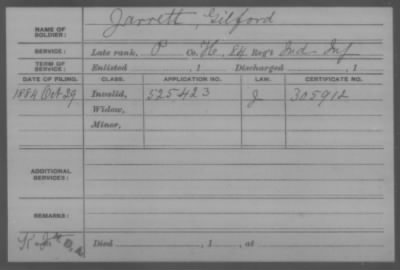 NAME OF SOLDIER: Jarrett, Gilford
SERVICE: Late rank, P Co. H, 84 Reg't Ind. Inf
TERM OF SERVICE: Enlisted , 1 Discharged , 1
DATE OF FILING. CLASS. APPLICATION NO. LAW. CERTIFICATE NO.
1884 Oct 29 Invalid, 525423 J 305912
Widow,
Minor,
ADDITIONAL SERVICES:
REMARKS:
Died , 1 , at